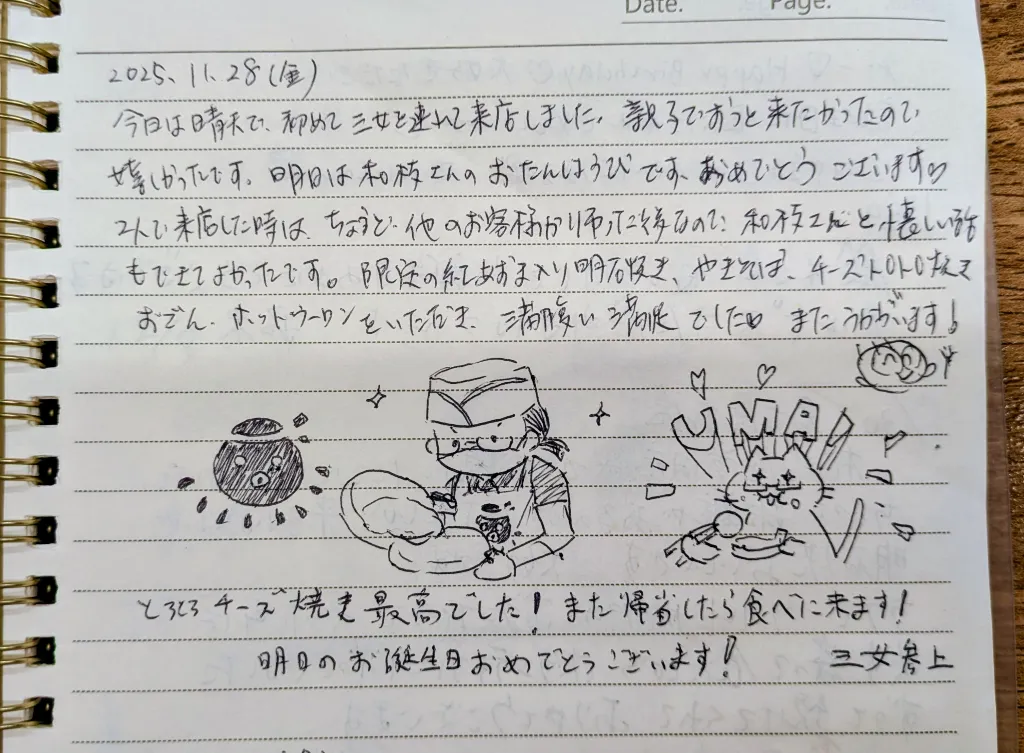 Date. Page.
2025. 11. 28 (金)
今日は晴天で、初めて三女を連れて来店しました。親子でずっと来たかったので
嬉しかったです。明日は和枝さんのおたんじょうびです、おめでとうございます♡
2人で来店した時は、ちょうど他のお客様が帰った後なので、和枝さんと懐しい話
もできてよかったです。限定の紅しょうが入り明石焼き、やきそば、チーズトロトロ焼き
おでん、ホットウーロンをいただき、満腹い満足でした♡ またうかがいます!
UMAI
とろとろチーズ焼き最高でした! また帰省したら食べに来ます!
明日のお誕生日おめでとうございます! 三女参上